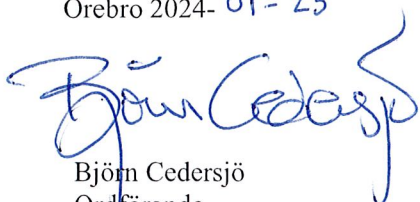 Örebro 2024- 01-23
Björn Cedersjö
Björn Cedersjö
Ordförande